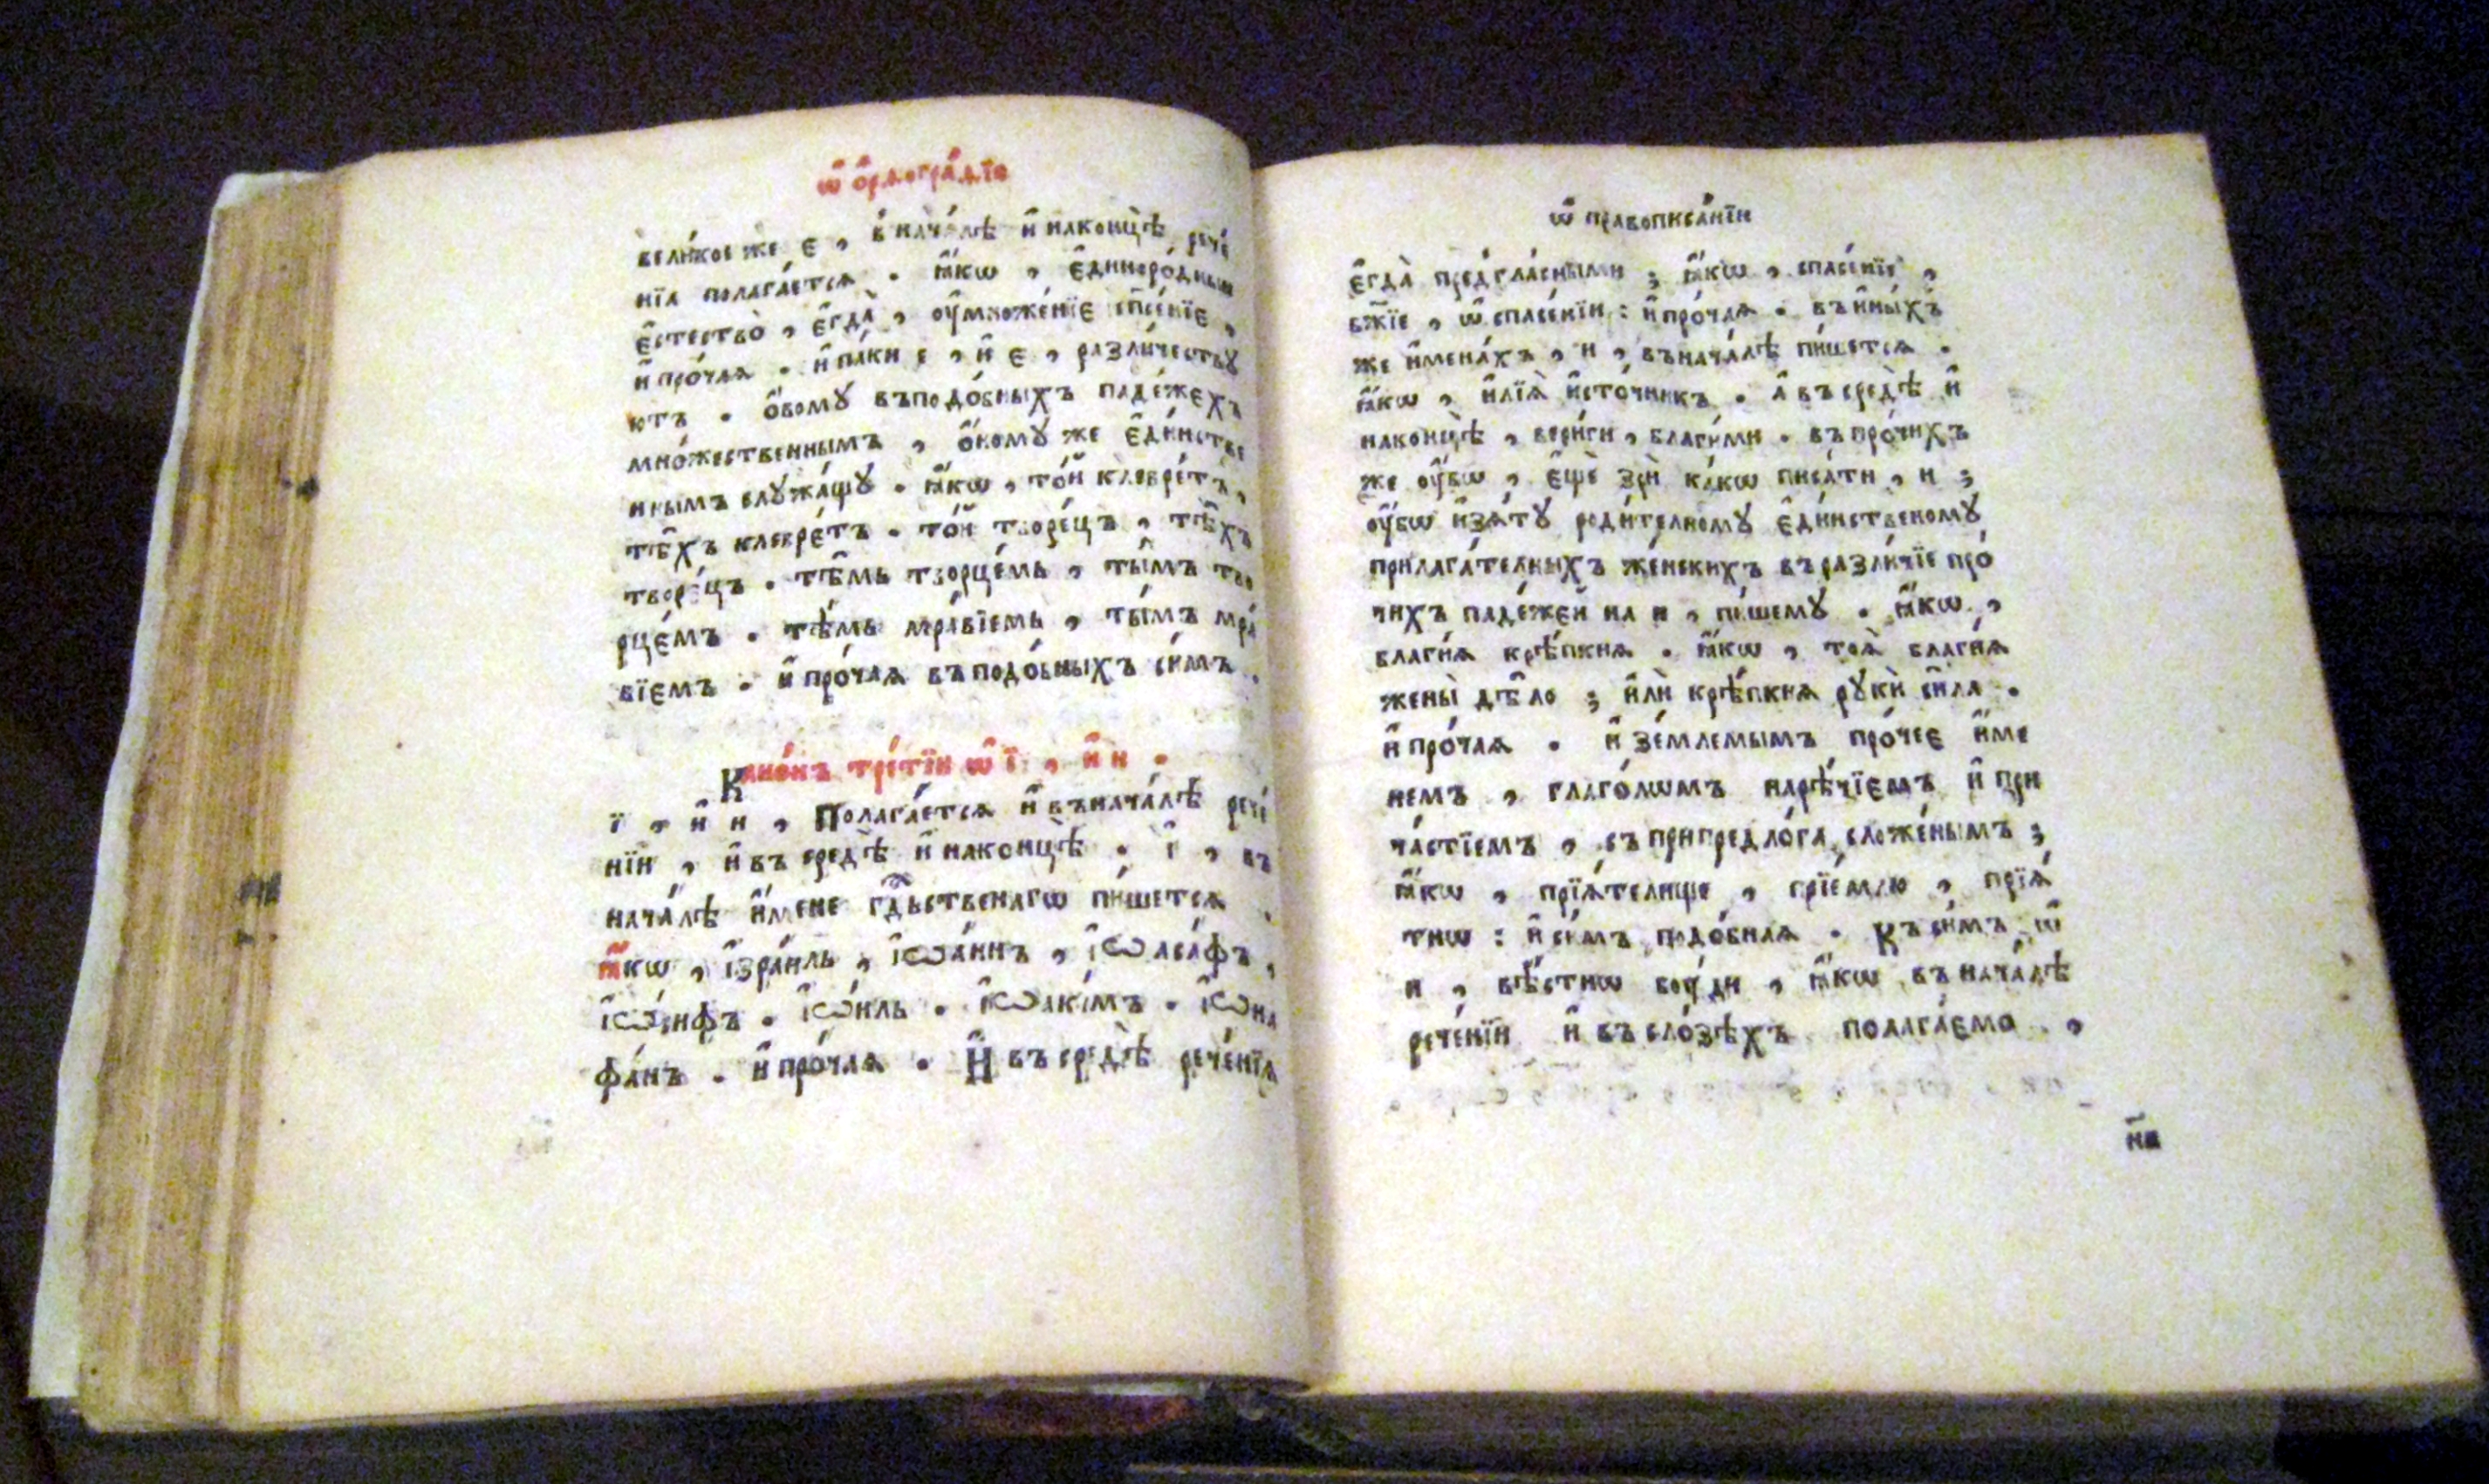 ѡ҆ ѻ҆рѳогра́фїи
вели́кое же є , в̾ нача́лѣ и҆ наконцѣ̀ рече́
нїѧ полага́етсѧ . ꙗ҆́кѡ , є҆диноро́дныи
є҆стество̀ , є҆гда̀ , ѹ҆множе́нїє сп҃се́нїє ,
и҆ про́чаѧ . и҆ па́ки е , и҆ є , разли́чествꙋ
ютъ . ѻ҆́вомꙋ въподо́бныхъ паде́жєхъ
мно́жественнымъ , ѻ҆́номꙋ же є҆ди́нстве
ннымъ слꙋжа́щꙋ . ꙗ҆́кѡ , то́й клевре́тъ ,
тѣ́хъ клевре́тъ . то́й творе́цъ , тѣ́хъ
творе́цъ . тѣ́мь творце́мь , ты́мъ тво
рцє́мъ . тѣ́мь мра́вїемь , ты́мъ мра́
вїємъ . и҆ про́чаѧ въподо́бныхъ си́мъ .
Кано́нъ тре́тїй ѡ҆ ї , и҆ и .
ї , и҆ и , Полага́етсѧ и҆ въ нача́лѣ рече́
нїи , и҆ въ средѣ̀ и҆ наконцѣ̀ . ї , въ
нача́лѣ и҆́мене гд҃ьственагѡ пи́шетсѧ .
ꙗ҆́кѡ , і҆зра́иль , і҆ѡа́ннъ , і҆ѡаса́фъ ,
і҆ѡ́сифъ . і҆ѡ́иль . і҆ѡаки́мъ . і҆ѡна
фа́нъ . и҆ про́чаѧ . И҆ въ средѣ̀ рече́нїѧ
ѡ҆ правописа́нїи
є҆гда̀ пред̾гла́сными ; ꙗ҆́кѡ , спасе́нїе ,
бж҃їе , ѡ҆ спасе́нїи : и҆ про́чаѧ . въ и҆ны́хъ
же и҆мена́хъ , и , въ нача́лѣ пи́шетсѧ .
ꙗ҆́кѡ , и҆лїѧ̀ и҆сто́чникъ . а҆ въ средѣ̀ и҆
наконцѣ̀ , вери́ги , благи́ми . въ про́чихъ
же ѹ҆́бѡ , є҆щѐ зрѝ ка́кѡ писа́ти , и ;
ѹ҆́бѡ и҆зѧ́тꙋ роди́телномꙋ є҆ди́нственомꙋ
прилага́телныхъ же́нскихъ въ разли́чїе про́
чихъ паде́жей на и , пи́шемꙋ . ꙗ҆́кѡ ,
благи́ѧ крѣ́пкиѧ . ꙗ҆́кѡ , тоѧ̀ благи́ѧ
жены̀ дѣ́ло ; и҆лѝ крѣ́пкиѧ рꙋкѝ си́ла .
и҆ про́чаѧ . и҆ зе́млемымъ про́чеє и҆́ме
немъ , глаго́лѡмъ нарѣ́чїємъ и҆ при
ча́стїемъ , съ при предло́га сложе́нымъ ;
ꙗ҆́кѡ , прїѧ́телище , прїе́млю , прїѧ́
тнѡ : и҆ си́мъ подо́бнаѧ . Къ си́мъ ѡ҆
и , вѣ́стнѡ бꙋ́ди , ꙗ҆́кѡ въ нача́лѣ
рече́нїи и҆ въ сло́зѣхъ полага́ємо ,